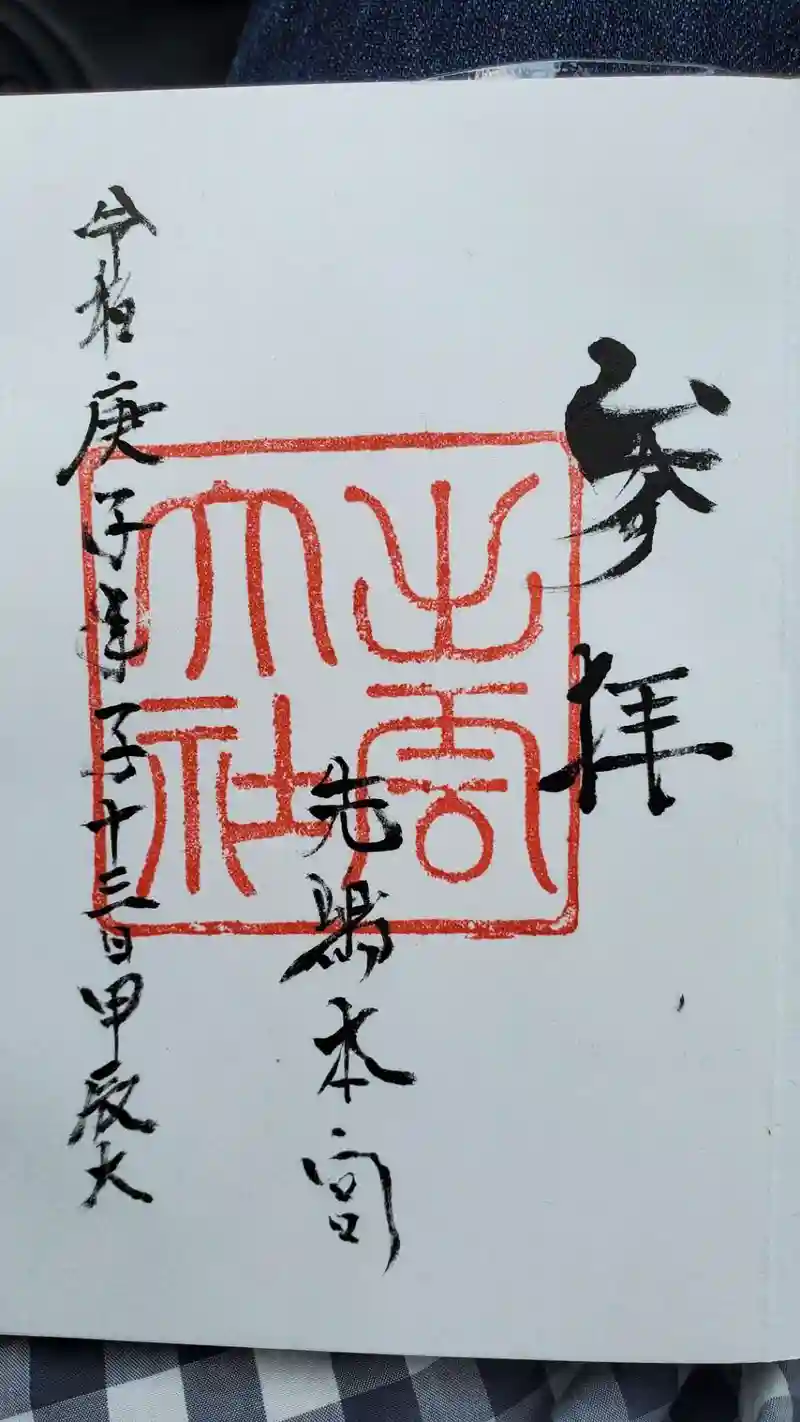 参拝
出雲大社
先本宮
令和庚子年子十三日甲辰大